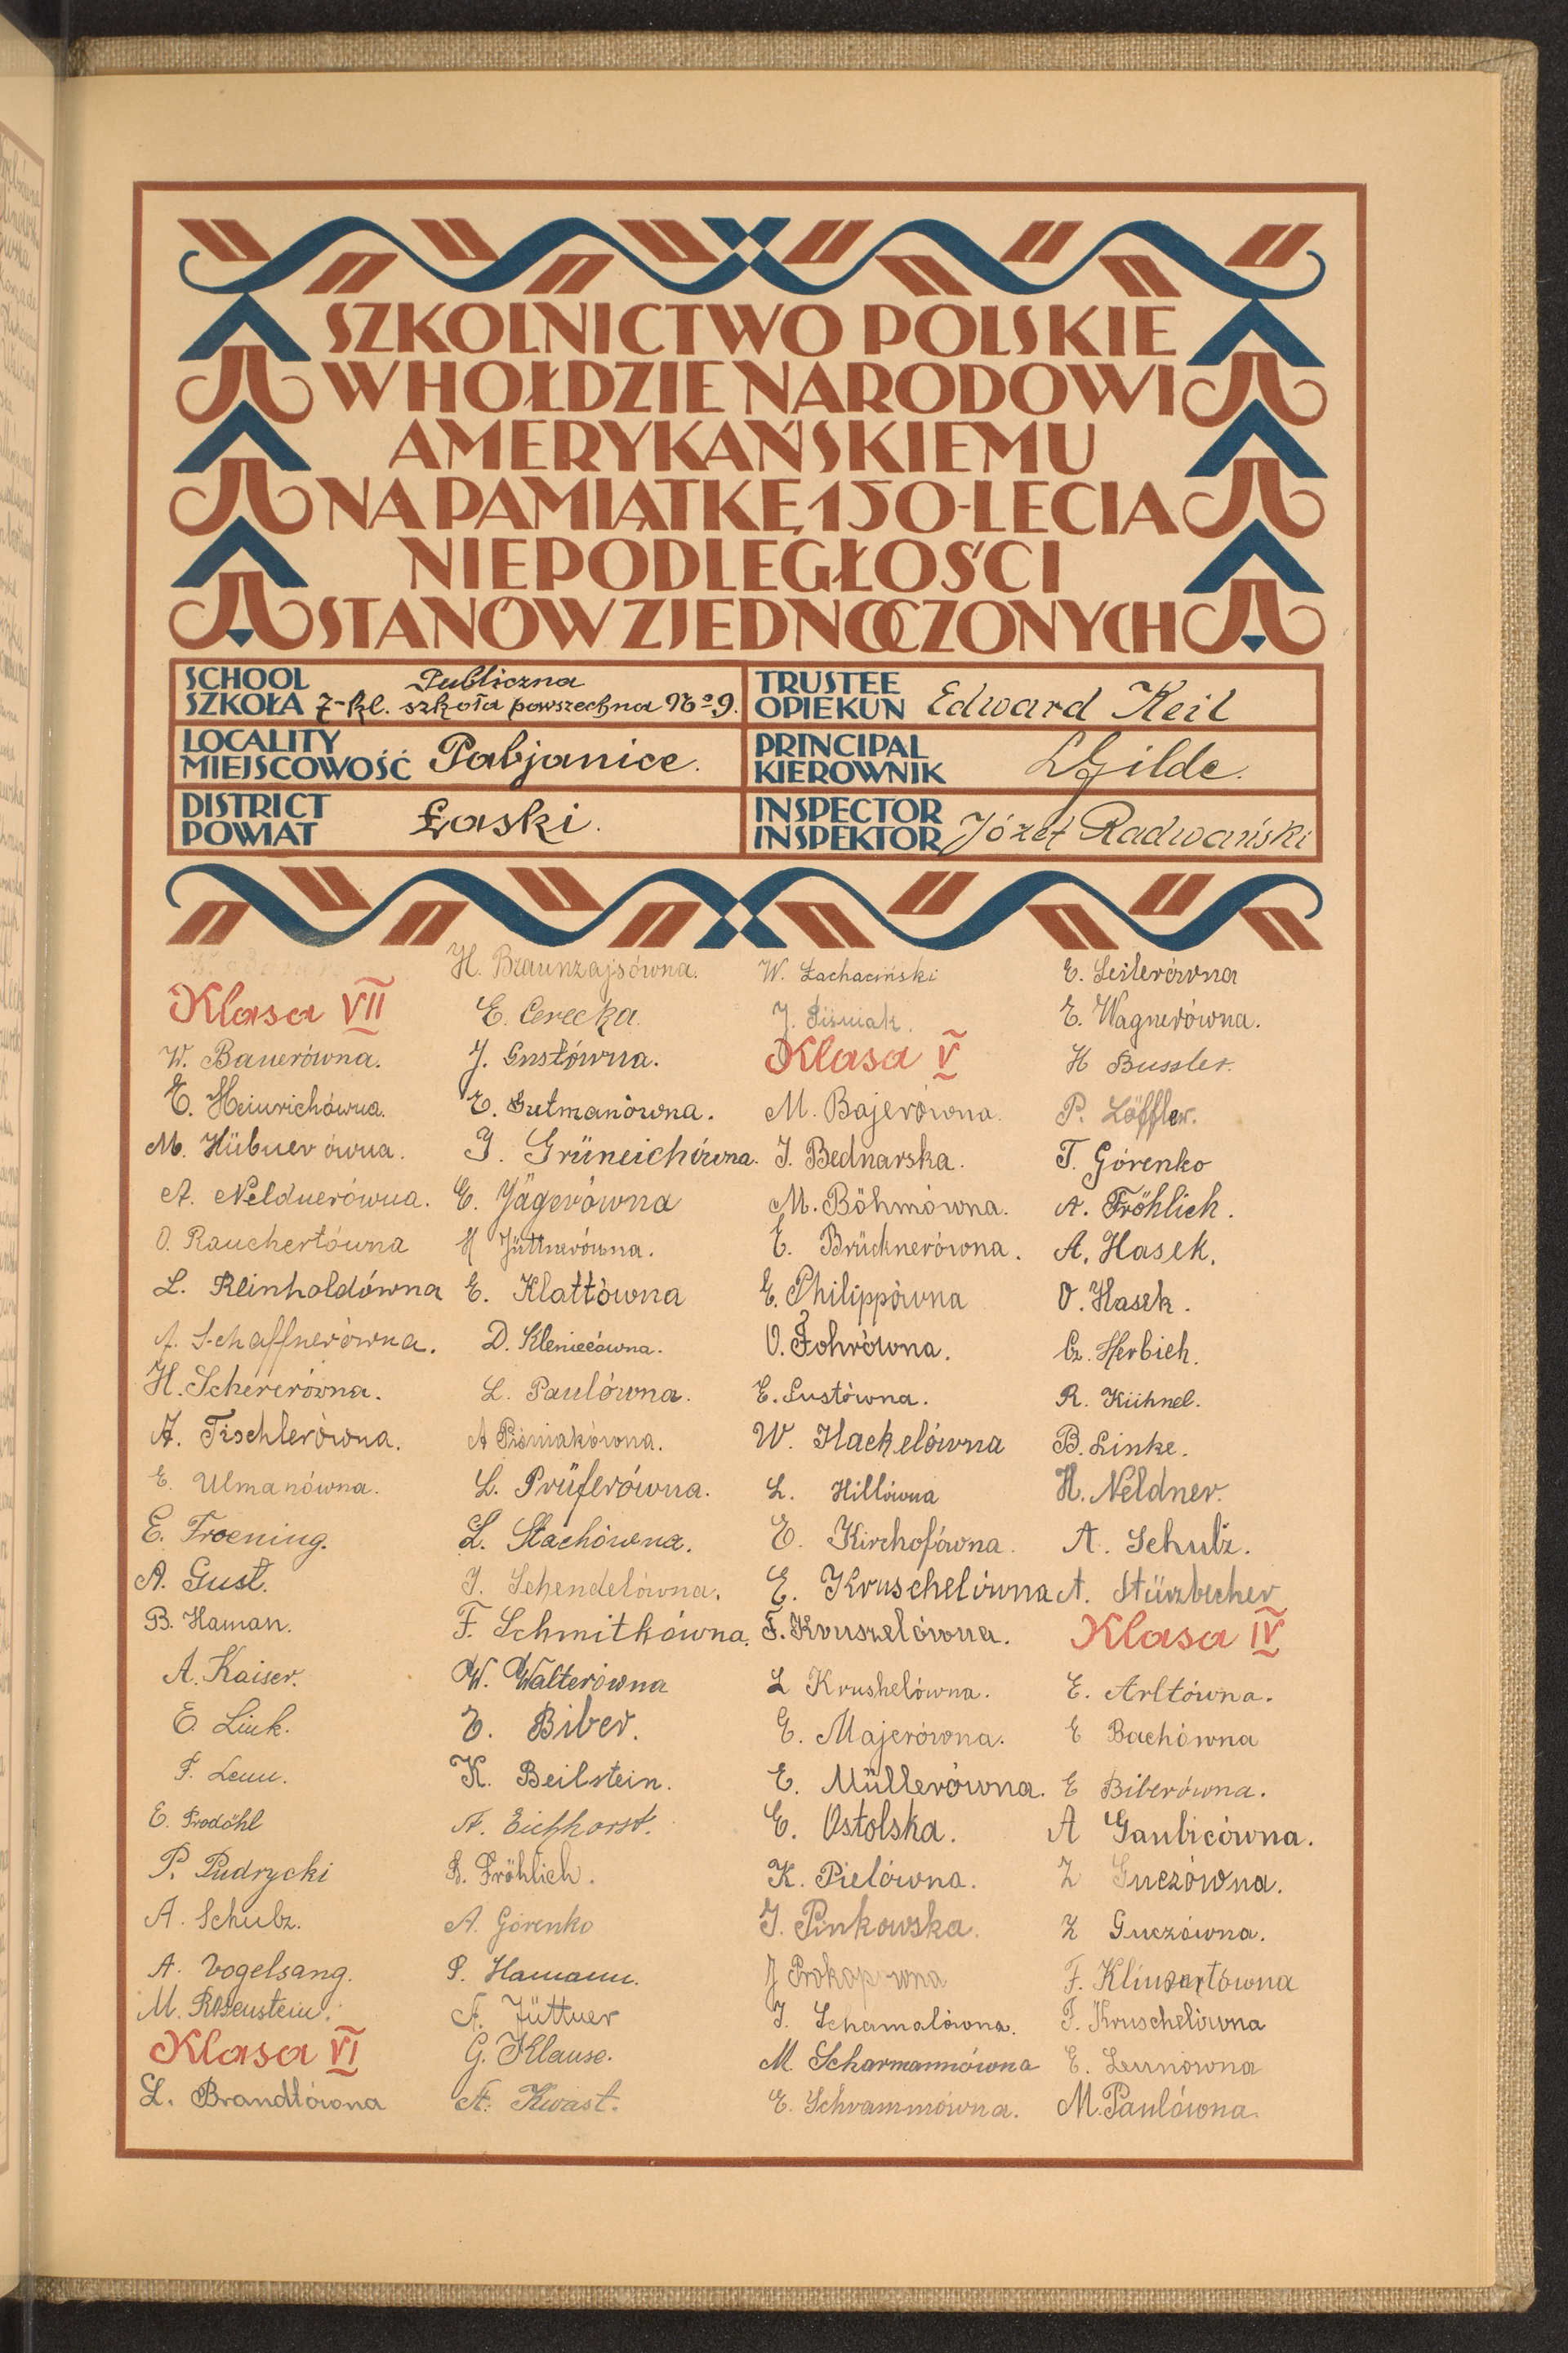 SZKOLNICTWO POLSKIE
W HOŁDZIE NARODOWI
AMERYKAŃSKIEMU
NA PAMIĄTKĘ 150-LECIA
NIEPODLEGŁOŚCI
STANÓW ZJEDNOCZONYCH
SCHOOL
SZKOŁA
Publiczna
7-kl. szkoła powszechna No 9.
TRUSTEE
OPIEKUN
Edward Keil
LOCALITY
MIEJSCOWOŚĆ
Pabjanice.
PRINCIPAL
KIEROWNIK
LGilde.
DISTRICT
POWIAT
Łaski.
INSPECTOR
INSPEKTOR
Józef Radwański
Klasa VII
W. Bauerówna.
E. Heinrichówna.
M. Hübnerówna.
A. Neldnerówna.
O. Rauchertówna
L. Reinholdówna
A. Schaffnerówna.
H. Schererówna.
A. Tischlerówna.
E. Ulmanówna.
E. Froening.
A. Gust.
B. Haman.
A. Kaiser.
E. Link.
F. Lenn.
E. Prodöhl
P. Pudrycki
A. Schulz.
A. Vogelsang.
M. Rozenstein.
Klasa VI
L. Brandtówna
H. Braunzajsówna.
E. Cerecka.
J. Gustówna.
E. Gutmanówna.
J. Grüneichówna.
E. Jägerówna
M Jüttnerówna.
E. Klattówna
D. Kleniecówna.
L. Paulówna.
A Piśniakówna.
L. Prüferówna.
L. Stachówna.
J. Schendelówna.
F. Schmitkówna.
W. Walterówna
E. Biber.
K. Beilstein.
A. Eichhorst.
L. Fröhlich.
A. Górenko
P. Hamann.
A. Jüttner
G. Klause.
A. Kwast.
W. Łachaciński
J. Piśniak.
Klasa V
M. Bajerówna.
J. Bednarska.
M. Böhmówna.
E. Brücknerówna.
E. Philippówna
O. Fohrówna.
E. Gustówna.
W. Hackelówna
L. Hillówna
E. Kirchofówna.
E. Kruschelówna
F. Kruszelówna.
L Krushelówna.
E. Majerówna.
E. Müllerówna.
E. Ostolska.
K. Pielówna.
J. Pinkowska.
J Prokopówna
J. Schamalówna.
M. Scharmannówna
E. Schrammówna.
E. Seilerówna
E. Wagnerówna.
H Bussler.
P. Löffler.
T. Górenko
A. Fröhlich.
A. Hasek.
O. Hasek.
Cz. Herbich.
R. Kühnel.
B. Linke.
H. Neldner.
A. Schulz.
A. Stürzbecher
Klasa IV
E. Arltówna.
E Bachówna
E Biberówna.
A Gaubicówna.
Z Guczówna.
Z Guczówna.
F. Klimpartówna
F. Kruschelówna
E. Lennówna
M. Paulówna.